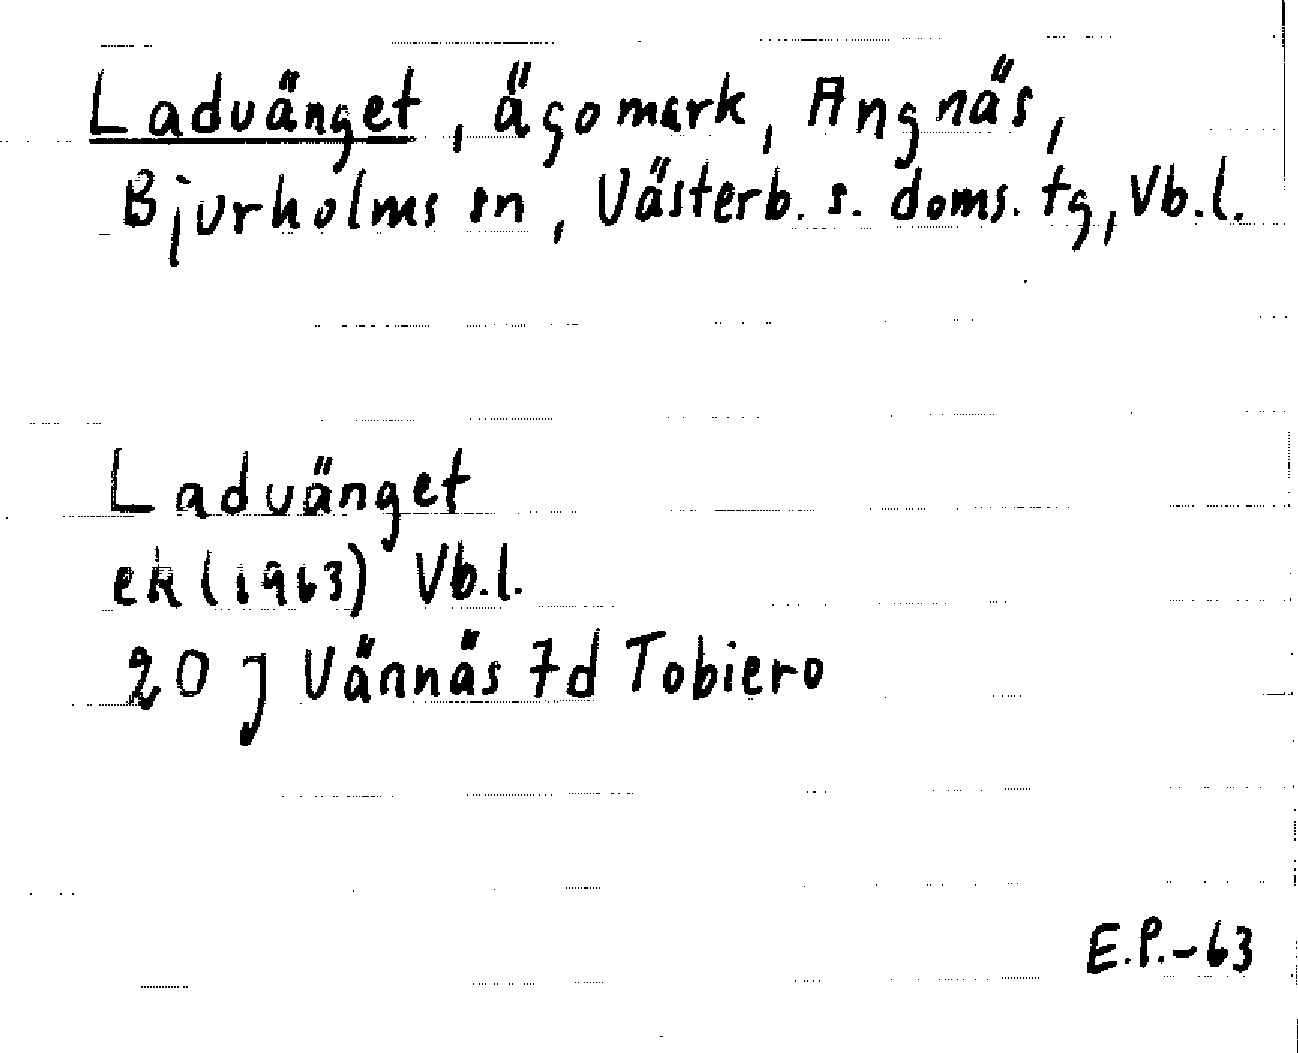 Ladvänget, ägomark, Angnäs,
Bjurholms sn, Västerb. s. doms. tg, Vb.l.
Ladvänget
ek (1963) Vb.l.
20 J Vännäs 7d Tobiero
E.P.-63